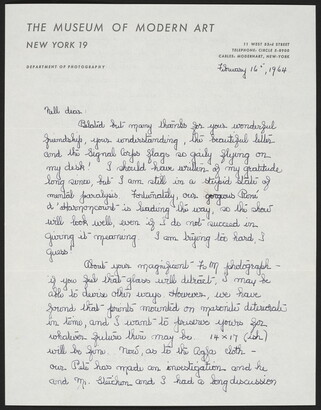 THE MUSEUM OF MODERN ART
NEW YORK 19
11 WEST 53rd STREET
TELEPHONE: CIRCLE 5-8900
CABLES: MODERNART, NEW-YORK
DEPARTMENT OF PHOTOGRAPHY
February 16th, 1964
Nell dear:
Belated but many thanks for your wonderful
friendship, your understanding, the beautiful letter
and the Signal Corps flags so gaily flying on
my desk! I should have written of my gratitude
long since, but I am still in a stupid state of
mental paralysis. Fortunately, our gorgeous René
d'Harnoncourt is leading the way, so the show
will look well, even if I do not succeed in
giving it meaning. I am trying too hard I
guess.
About your magnificent photograph -
if you feel that glass will detract, I may be
able to devise other ways. However, we have
found that prints mounted on masonite deteriorate
in time, and I want to preserve yours for
whatever future there may be. 14 x 17 (ish)
will be fine. Now, as to the Agfa cloth -
our Pete has made an investigation and he
and Mr. Steichen and I had a long discussion